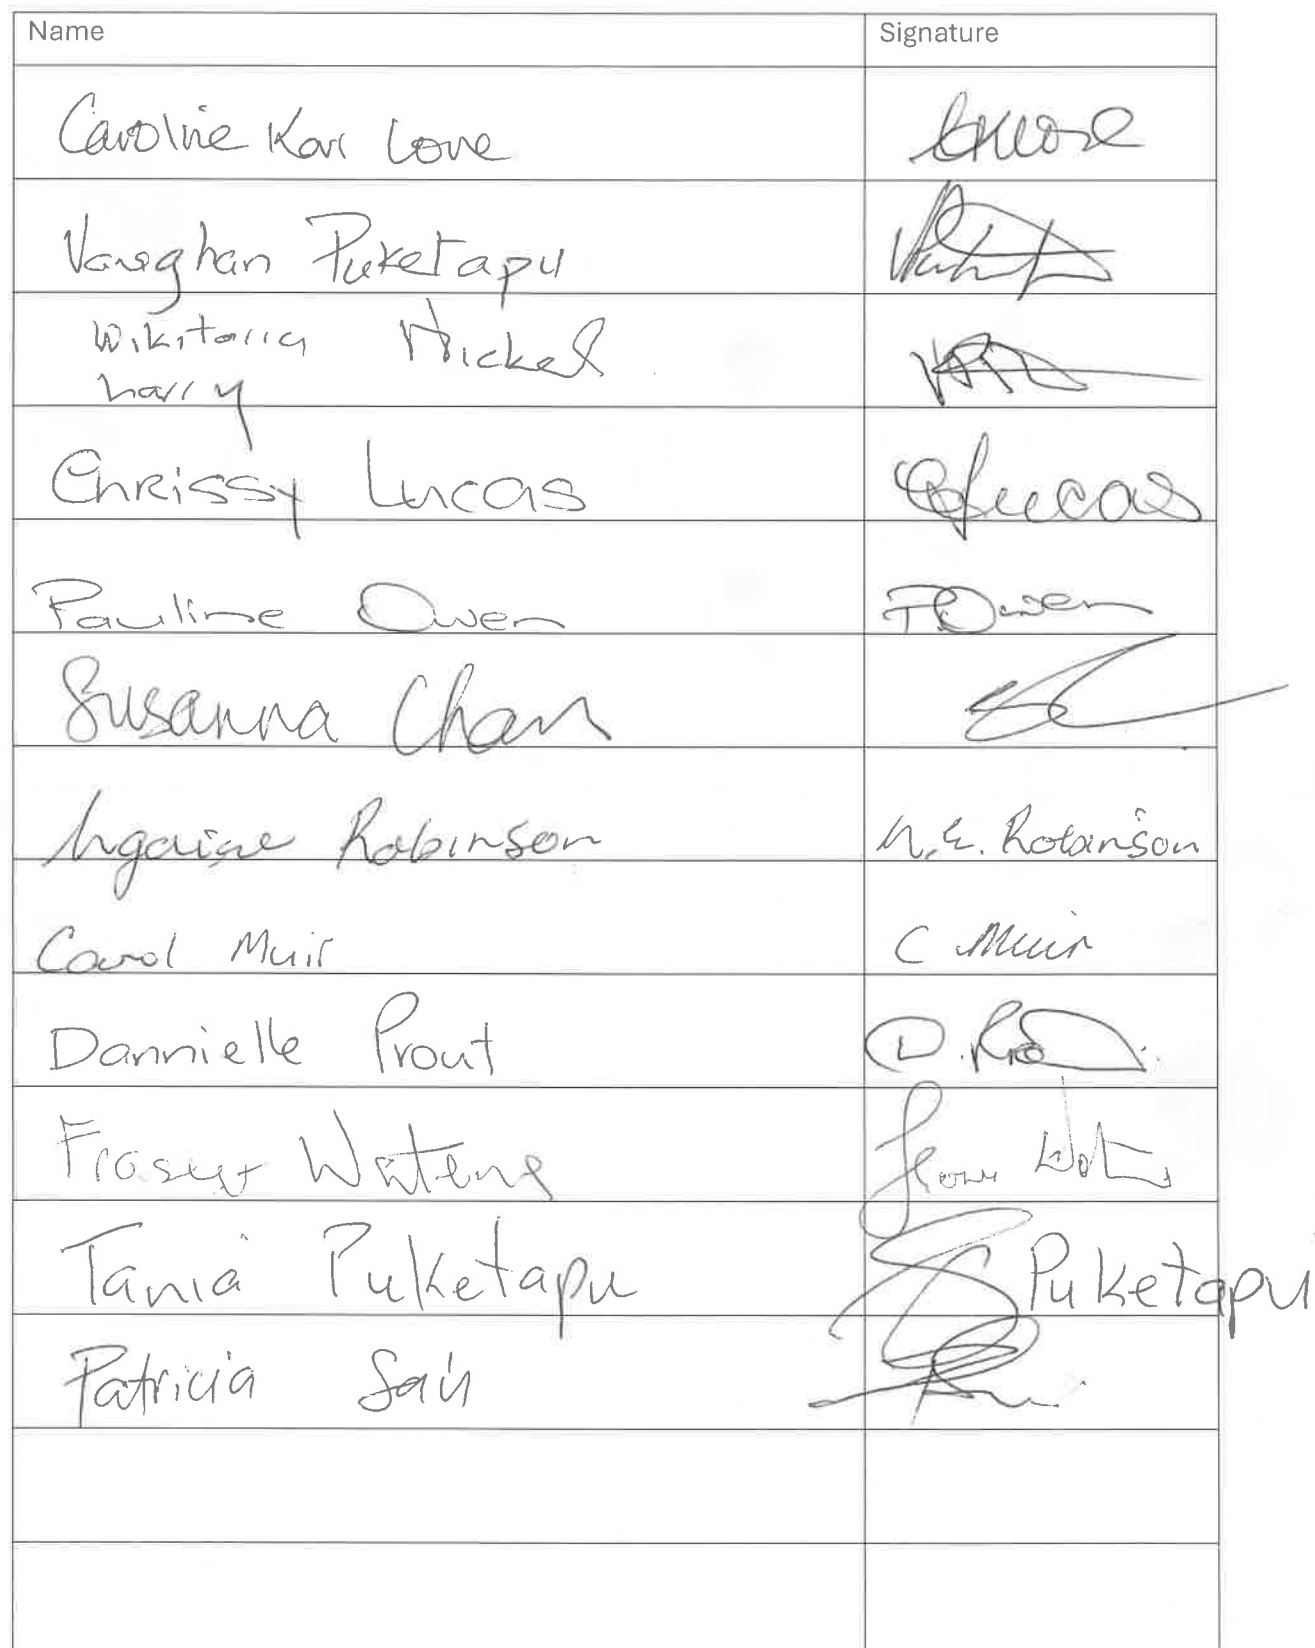 Name Signature
Caroline Kari Love
Vaughan Puketapu
Wikitoria Nickel
harry
Chrissy Lucas CLucas
Pauline Owen P.Owen
Susanna Chan
Ngaire Robinson N.E. Robinson
Carol Muir C Muir
Dannielle Prout D.
Fraser
Tania Puketapu Puketapu
Patricia